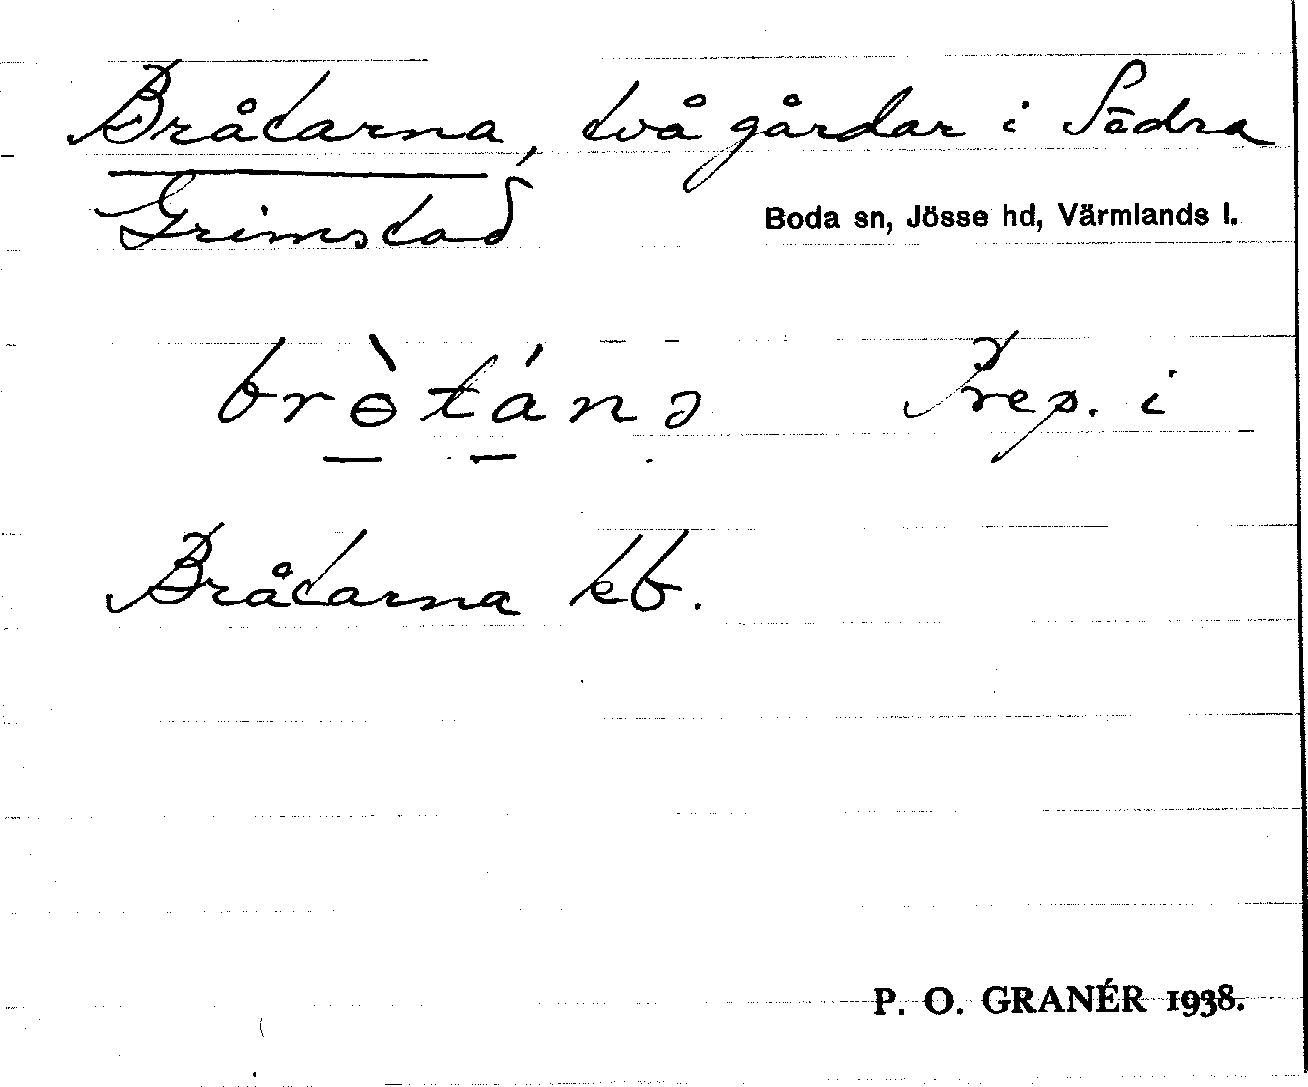 Bråtarna, två gårdar i Södra
Grimstad
Boda sn, Jösse hd, Värmlands l.
brɵ̀tánə Prep. i
Bråtarna kb.
P. O. GRANÉR 1938.